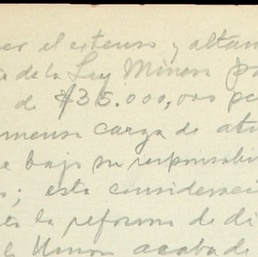 er el estenso y altam
de la Ley Minera pa
de $35.000,000 pe
mensa carga de at
e bajo su responsabi
s; esta consideraci
la reforma de di
la Union acaba de